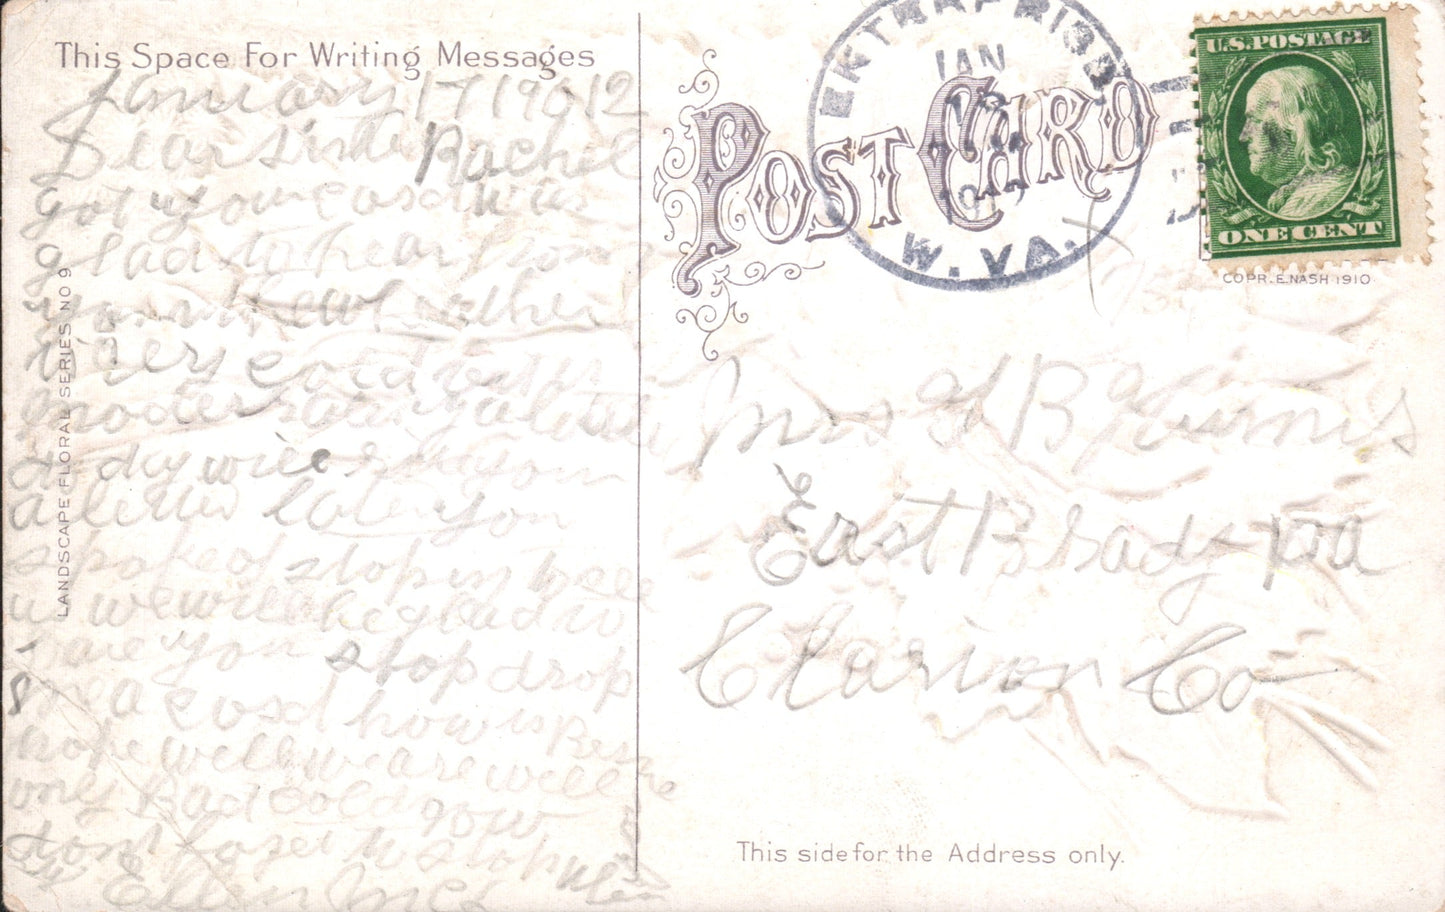 This Space For Writing Messages
January 17 19012
Dear Sister Rachel
got your card was
glad to hear from
you the wheather
is very cold
to day will rite you
a letter later you
spoke of stop in well
we will be glad to
have you stop drop
me a card how is Bessie
hope well we are well
only Bad Cold now
dont forget to stop
Ellen
LANDSCAPE FLORAL SERIES NO 9
POST CARD
ENTERPRISE
JAN
18
1912
W. VA.
U.S. POSTAGE
ONE CENT
COPR. E. NASH 1910
Mrs
East Brady Pa
Clarion Co
This side for the Address only.